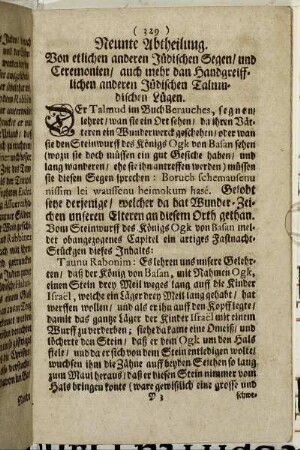 ( 329 )
Neunte Abtheilung.
Von etlichen anderen Jüdischen Segen/ und
Ceremonien/ auch mehr dan Handgreiff-
lichen anderen Jüdischen Talmu-
dischen Lügen.
Der Talmud im Buch Berauches, segnen/
lehret/ wan sie ein Ort sehen/ da ihren Vä-
teren ein Wunderwerck geschehen/ oder wan
sie den Steinwurff des Königs Ogk von Basan sehen
(wozu sie doch müssen ein gut Gesicht haben/ und
lang wanderen/ ehe sie ihn antreffen werden) müssen
sie diesen Segen sprechen: Boruch schemauseru
nissim lei waussenu heimokum hasé. Gelobt
seye derjenige/ welcher da hat Wunder-Zei-
chen unseren Elteren an diesem Orth gethan.
Vom Steinwurff des Königs Ogk von Basan mel-
det obangezogenes Capitel ein artiges Fastnacht-
Stückgen dieses Inhalts:
Taunu Rabonim: Es lehren uns unsere Gelehr-
ten/ daß der König von Basan, mit Nahmen Ogk,
einen Stein drey Meil weges lang auff die Kinder
Israël, welche ein Läger drey Meil lang gehabt/ hat
werffen wollen/ und als er ihn auff den Kopff legte/
damit das gantze Läger der Kinder Israël mit einem
Wurff zu verderben; siehe da kame eine Omeiß/ und
löcherte den Stein/ daß er dem Ogk um den Hals
fiele/ und da er sich von dem Stein entledigen wolte/
wuchsen ihm die Zähne auff beyden Seithen so lang
zum Maul heraus/ daß er diesen Stein nimmer vom
Hals bringen konte (ware gewißlich eine grosse und
schwe-